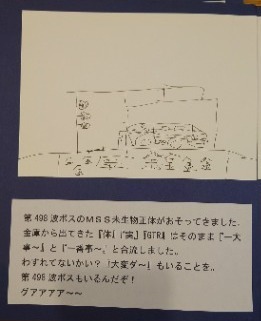 第498波ボスのMSS未生物正体がおそってきました。
金庫から出てきた『体』『実』『GTR』はそのまま『一大
事〜』と『一答亭〜』と合流しました。
わすれてないかい？『大変ダ〜』もいることを。
第498波ボスもいるんだぞ！
グアアアア〜〜